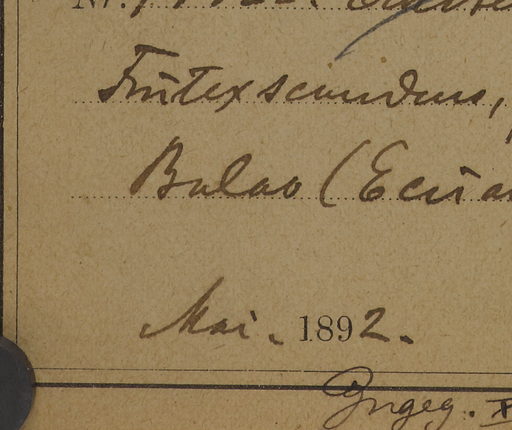 Frutex scandens,
Balao (Ecua
Mai. 1892.
Gngeg.